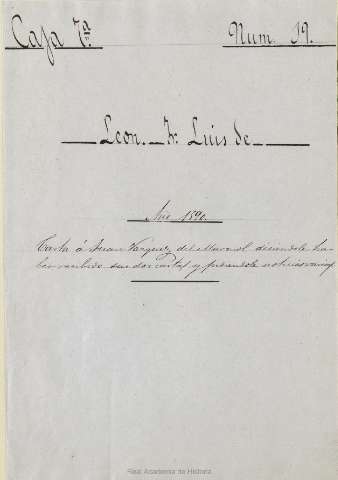 Caja 7ª. Num. 19.
Leon. Fr. Luis de
Año 1590.
Carta á Juan Vazquez del Marmol diciendole ha-
ber recibido sus dos cartas y pidiendole noticias varias
Real Academia de la Historia